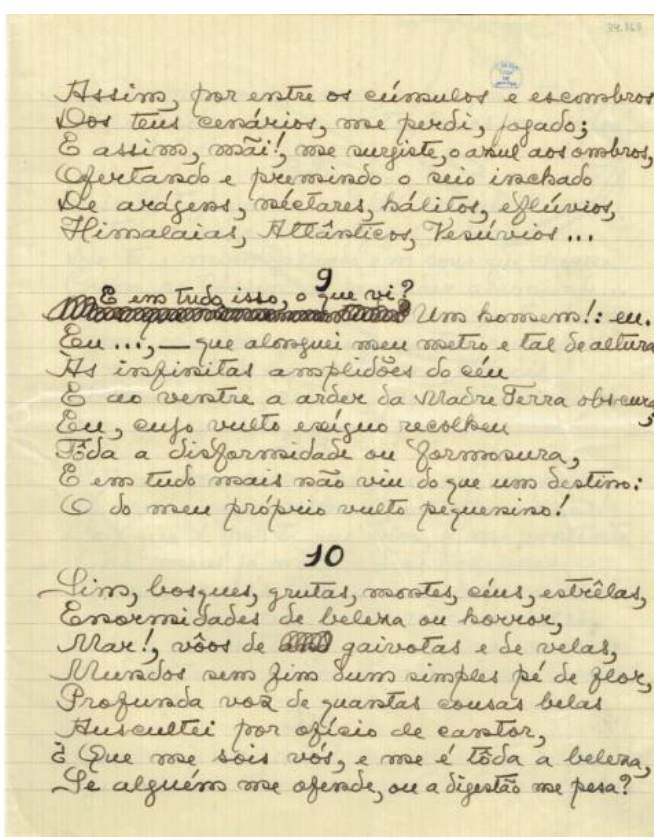 34.168
Assim, por entre os cúmulos e escombros
Dos teus cenários, me perdi, jogado;
E assim, mãi!, me surgiste, o azul aos ombros,
Ofertando e premindo o seio inchado
De arágens, néctares, hálitos, eflúvios,
Himalaias, Atlânticos, Vesúvios...
9
E em tudo isso, o que vi?
Um homem!: eu.
Eu..., — que alonguei meu metro e tal de altura
Às infinitas amplidões do céu
E ao ventre a arder da Madre Terra obscura,
Eu, cujo vulto exíguo recolheu
Tôda a disformidade ou formosura,
E em tudo mais não viu do que um destino:
O do meu próprio vulto pequenino!
10
Sim, bosques, grutas, montes, céus, estrêlas,
Enormidades de beleza ou horror,
Mar!, vôos de gaivotas e de velas,
Mundos sem fim dum simples pé de flor,
Profunda voz de quantas cousas belas
Auscultei por ofício de cantor,
Que me sois vós, e me é tôda a beleza,
Se alguém me ofende, ou a digestão me pesa?